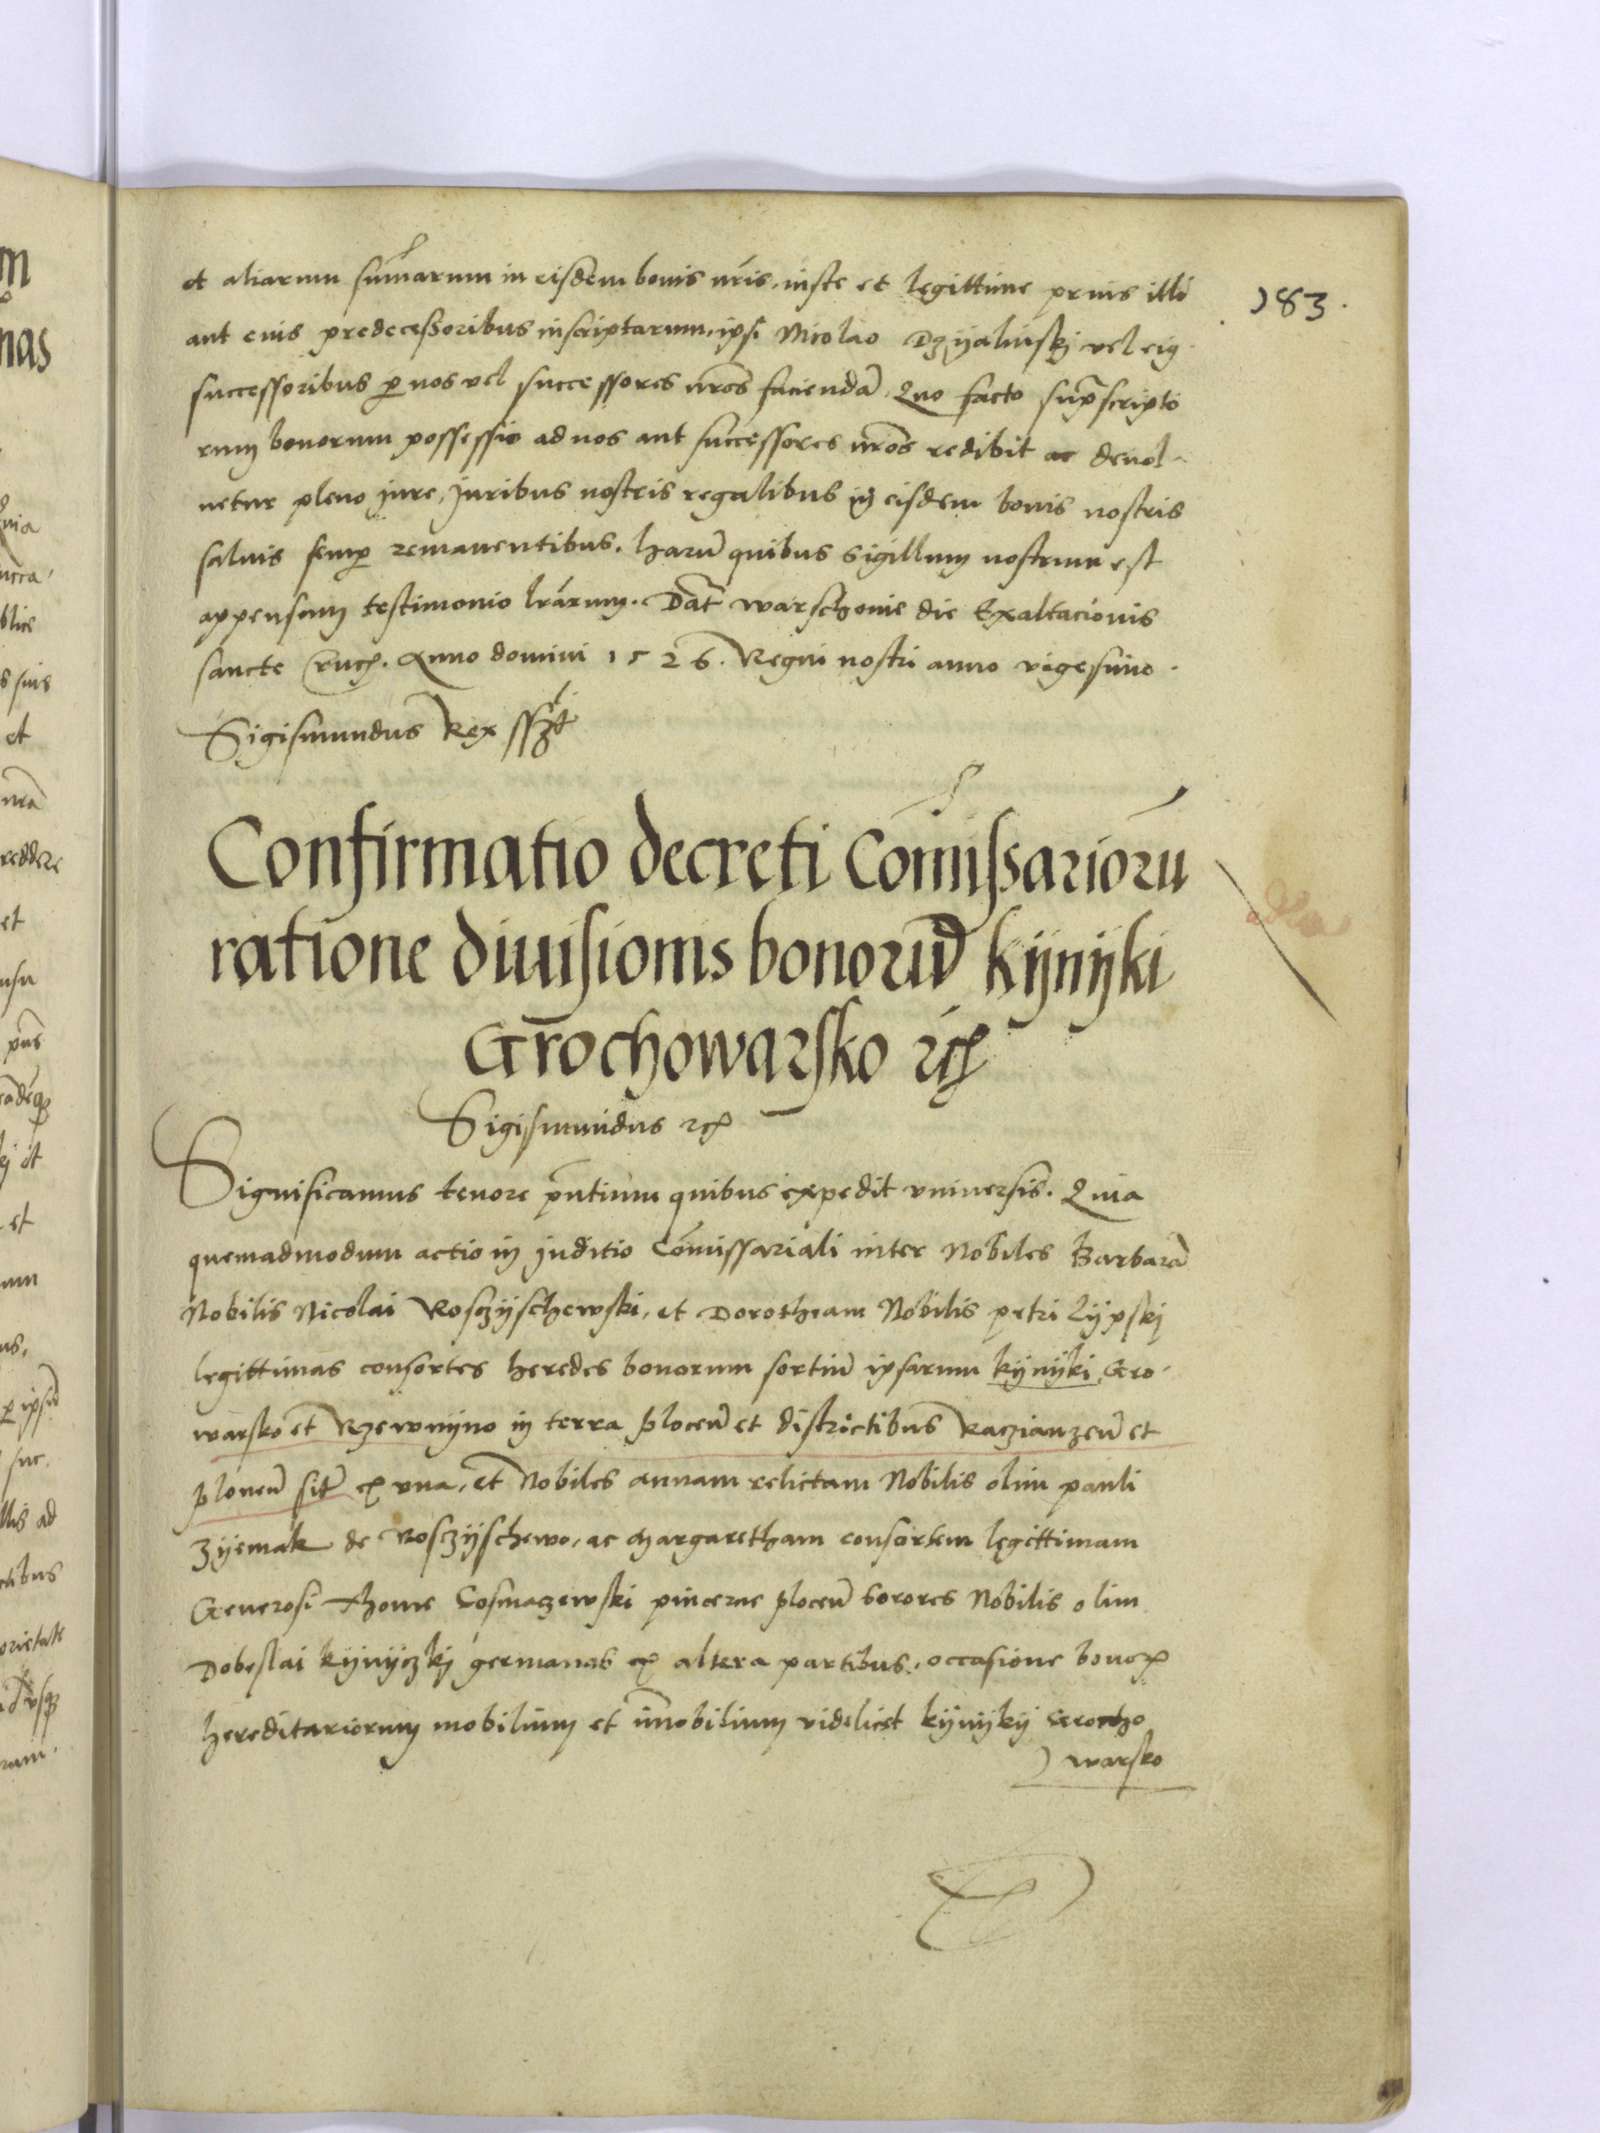 et aliarum sum̄arum in eisdem bonis nr̄is, iuste et legittime prius illi
183.
aut eius predecessoribus inscriptarum, ipsi Nicolao Dzijalinskj vel eiꝰ
successoribus ꝑ nos vel successores nr̄os faciendā. Quo facto sup̄scripto
rum bonorum possessio ad nos aut successores nr̄os redibit ac deuol-
uetur pleno jure, juribus nostris regalibus in eisdem bonis nostris
saluis semꝑ remanentibus. harū quibus sigillum nostrum est
appensum testimonio lr̄arum. Dat̄ warschouie die Exaltacionis
sancte Cruc̄. Anno domini 1526. Regni nostri anno vigesimo.
Sigismundus Rex sszt
Confirmatio decreti Com̄issariorū
ratione diuisionis bonorum kijnijki
Grochowarsko rc̄
Sigismundus rc̄
Significamus tenore pn̄tium quibus expedit vniuersis. Quia
quemadmodum actio in juditio Com̄issariali inter Nobiles Barbarā
Nobilis Nicolai Rosczijschewski, et Dorotheam Nobilis petri Lijpskj
legittimas consortes heredes bonorum sortiū ipsarum kijnijki, Gro-
warsko et Rzewnijno in terra plocen̄ et districtibus Raczianzen̄ et
plonen̄ sit̄ ex vna, et Nobiles annam relictam Nobilis olim pauli
Zijemak de Rosczijschewo, ac Margaretham consortem legittimam
Generosi Thome Cosmaczewski pincerne plocen̄ sorores Nobilis olim
Dobeslai kijnijczkj germanas ex altera partibus, occasione bonoꝝ
hereditariorum mobilium et im̄obilium videlicet kijnijkij Grocho
warsko